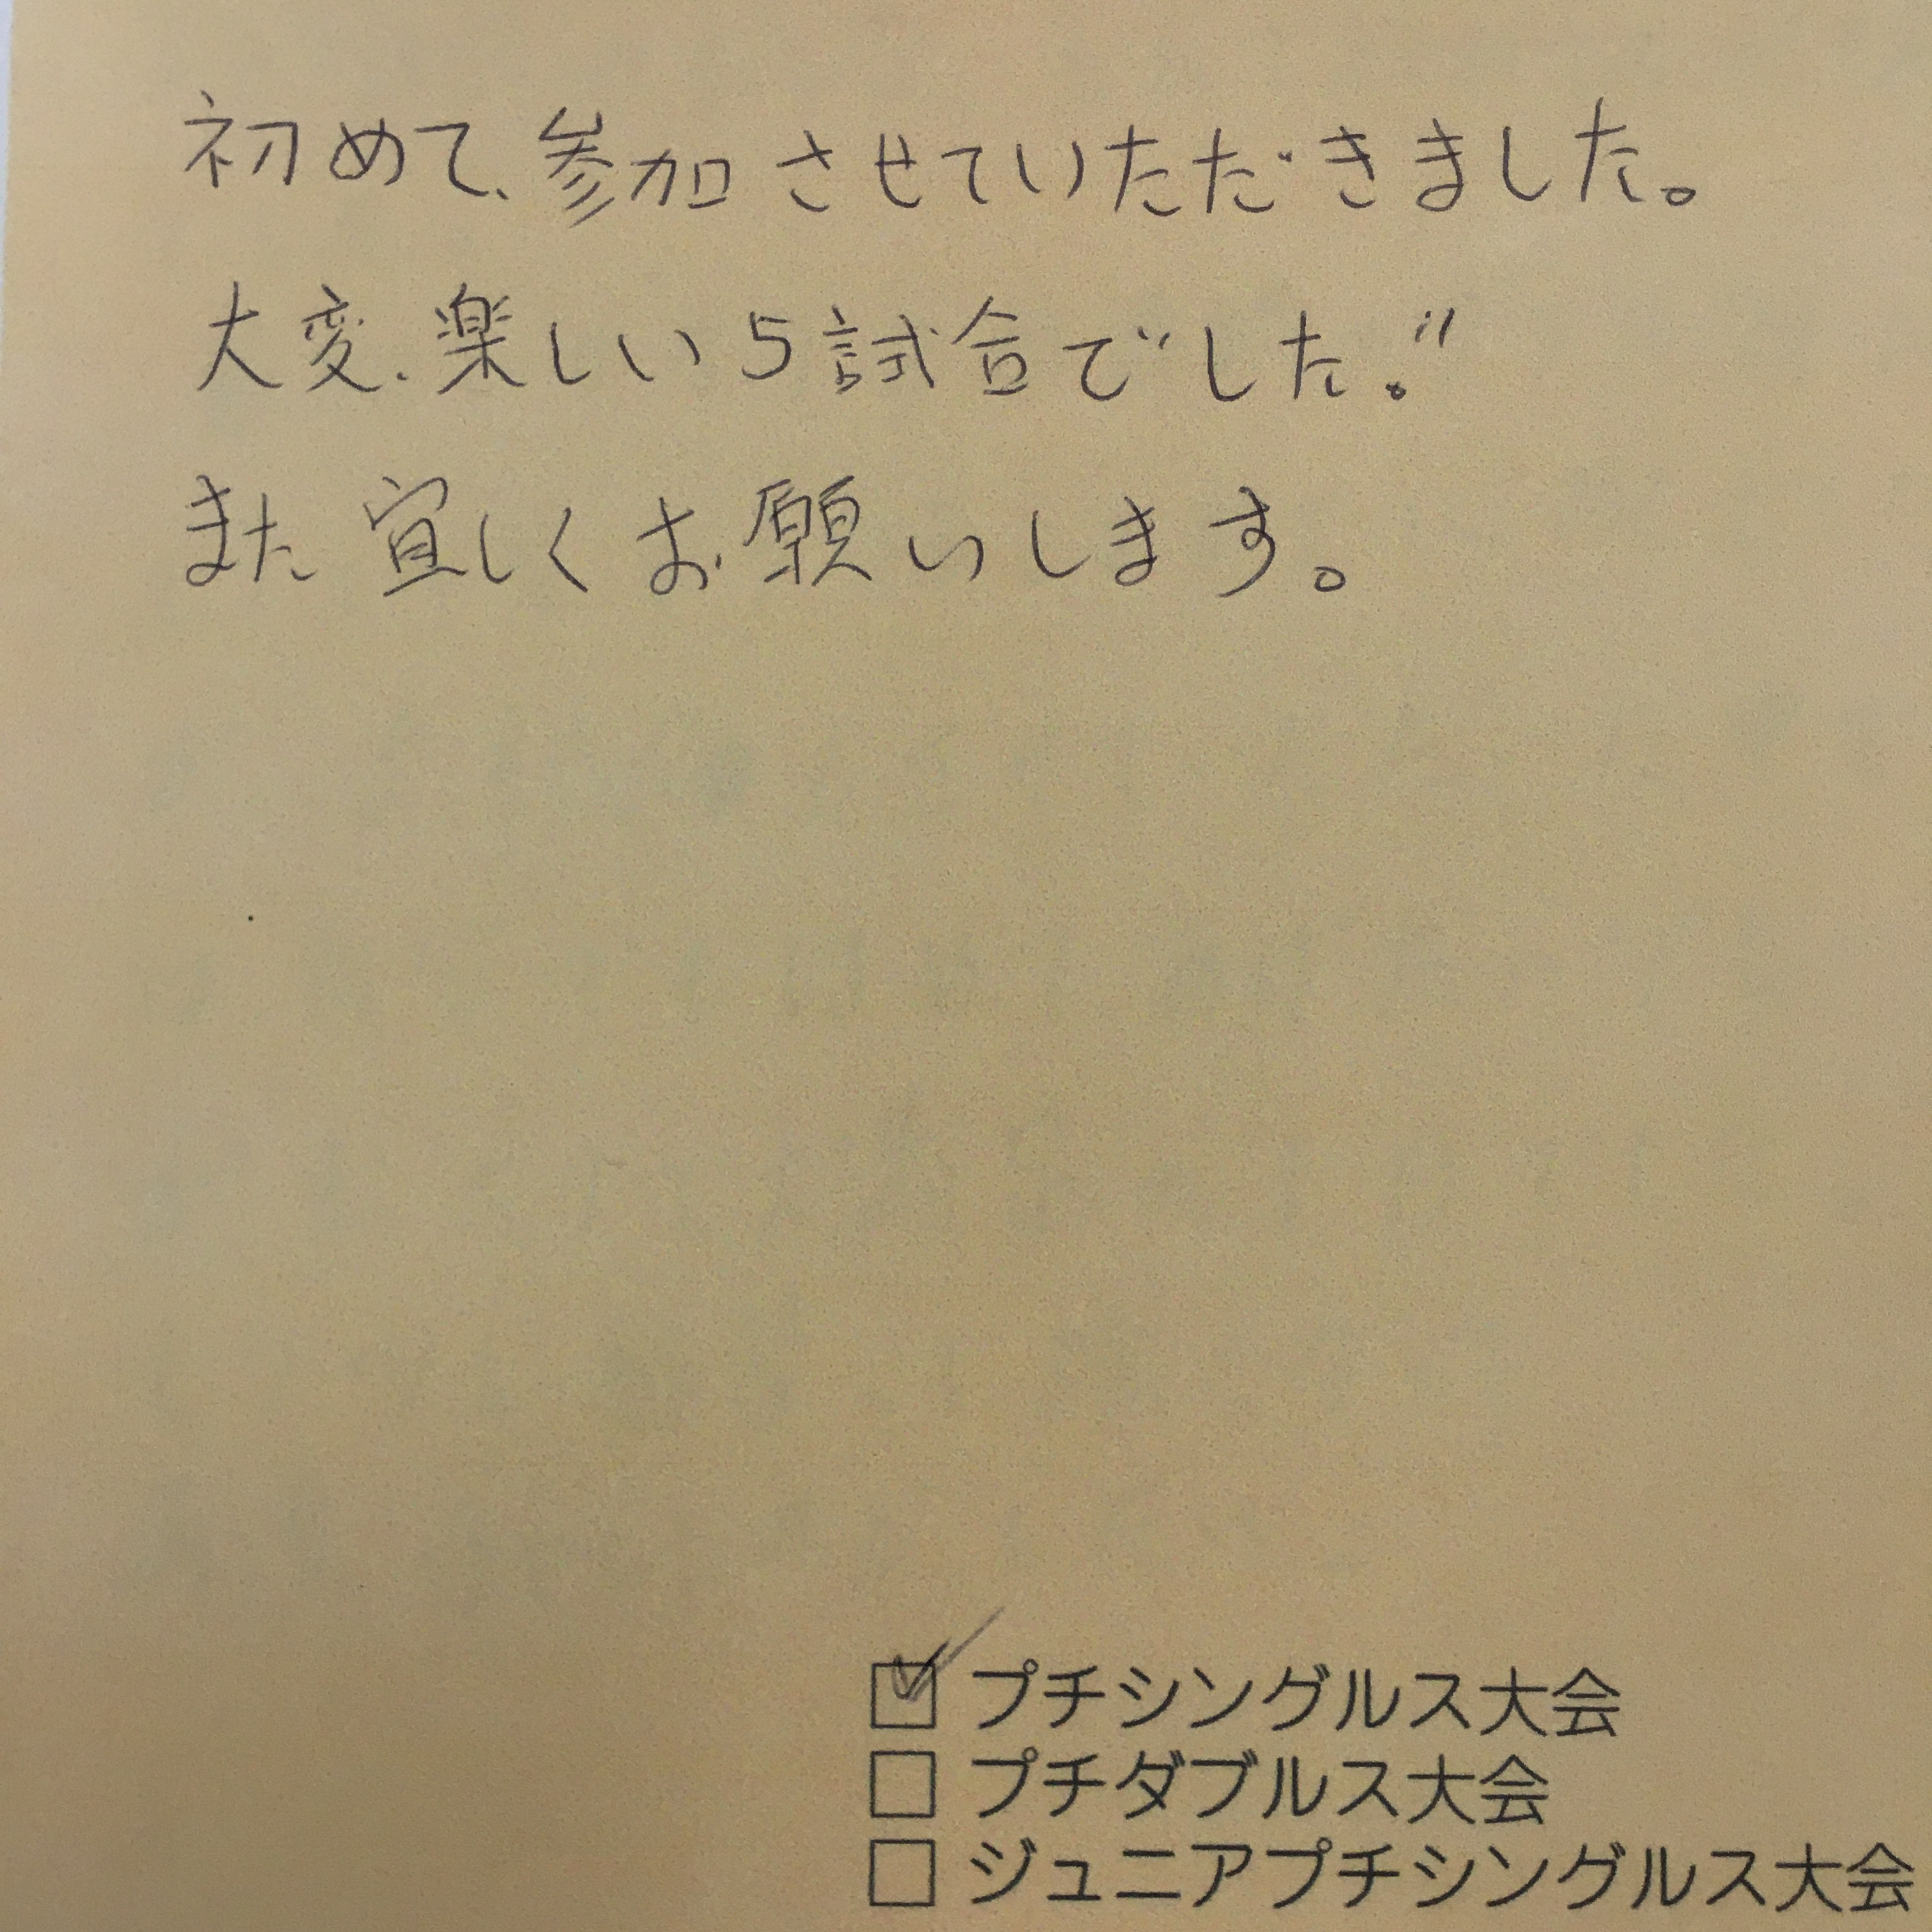 初めて、参加させていただきました。
大変、楽しい5試合でした。!!
また宜しくお願いします。
☑ プチシングルス大会
☐ プチダブルス大会
☐ ジュニアプチシングルス大会